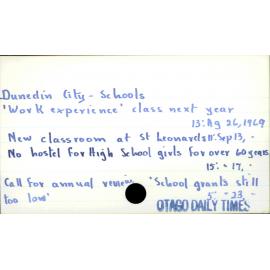 Dunedin City - Schools
'Work experience' class next year
13: Ag 26, 1969
New classroom at St Leonards 11: Sep 13, -
No hostel for High School girls for over 60 years
15: - 17, -
Call for annual review 'School grants still
too low' 5: - 23, -
OTAGO DAILY TIMES